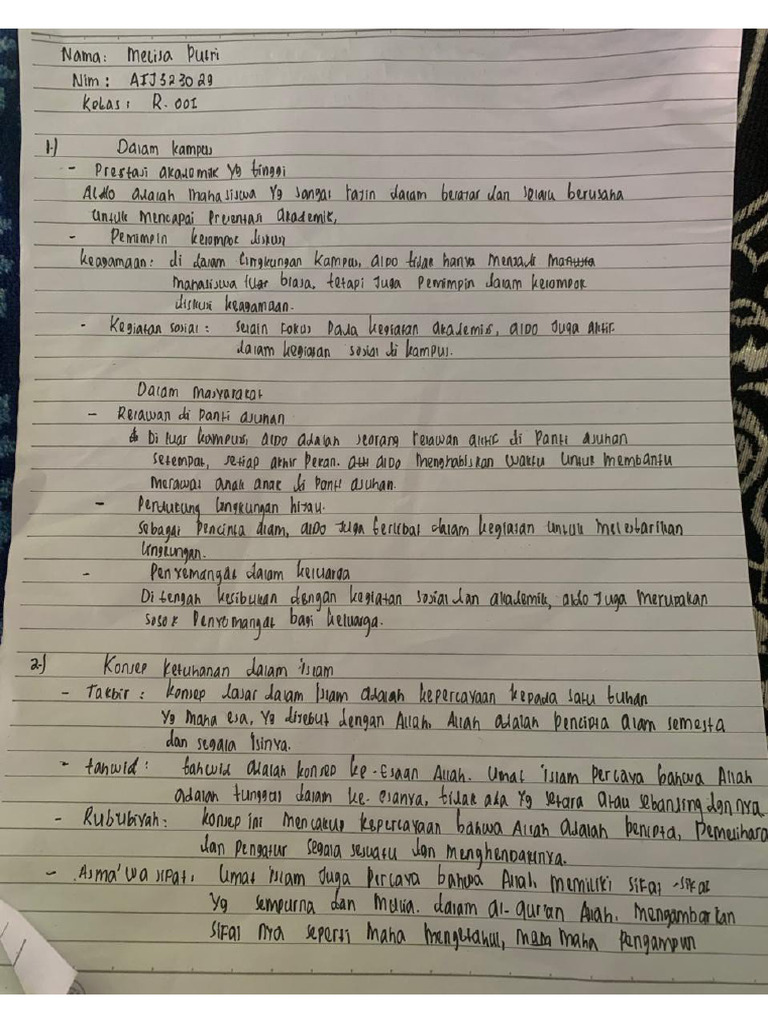 Nama: Melisa Putri
Nim: AIJ323029
Kelas: R.001
1.) Dalam kampus
- Prestasi akademik yg tinggi
Aldo adalah mahasiswa yg sangat rajin dalam belajar dan selalu berusaha
untuk mencapai Presentasi akademik,
- Pemimpin kelompok diskusi
keagamaan: di dalam lingkungan kampus, aldo tidak hanya menjadi
mahasiswa luar biasa. tetapi juga Pemimpin dalam kelompok
diskusi keagamaan.
- Kegiatan sosial: selain fokus Pada kegiatan akademis, aldo juga aktif
dalam kegiatan sosial di kampus.
Dalam masyarakat
- Relawan di Panti asuhan
Di luar kampus, aldo adalah seorang relawan aktif di Panti asuhan
setempat, setiap akhir Pekan. aldo menghabiskan waktu untuk membantu
merawat anak anak di Panti asuhan.
- Pendukung lingkungan hijau.
sebagai Pencinta alam, aldo juga terlibat dalam kegiatan untuk melestarikan
lingkungan.
- Penyemangat dalam keluarga
Di tengah kesibukan dengan kegiatan sosial dan akademik, aldo juga merupakan
sosok Penyemangat bagi keluarga.
2.) Konsep ketuhanan dalam islam
- Takbir: konsep dasar dalam islam adalah kepercayaan kepada satu tuhan
Yg maha esa, Yg disebut dengan Allah. Allah adalah pencipta alam semesta
dan segala isinya.
- tahwid: tahwid adalah konsep ke-Esaan Allah. Umat islam percaya bahwa Allah
adalah tunggal dalam ke-esanya, tidak ada yg setara atau sebanding dgn nya.
- Rububiyah: konsep ini mencakup kepercayaan bahwa Allah adalah pencipta, pemelihara
dan pengatur segala sesuatu dan menghendakinya.
- Asma'wa sifat: Umat islam juga Percaya bahwa Allah memiliki sifat-sifat
Yg sempurna dan mulia. dalam al-qur'an Allah. mengambarkan
sifat nya seperti maha mengetahui, maha pengampun